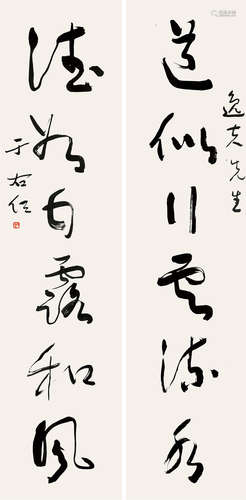 逸夫先生
道似行云流水
德如甘露和风
于右任